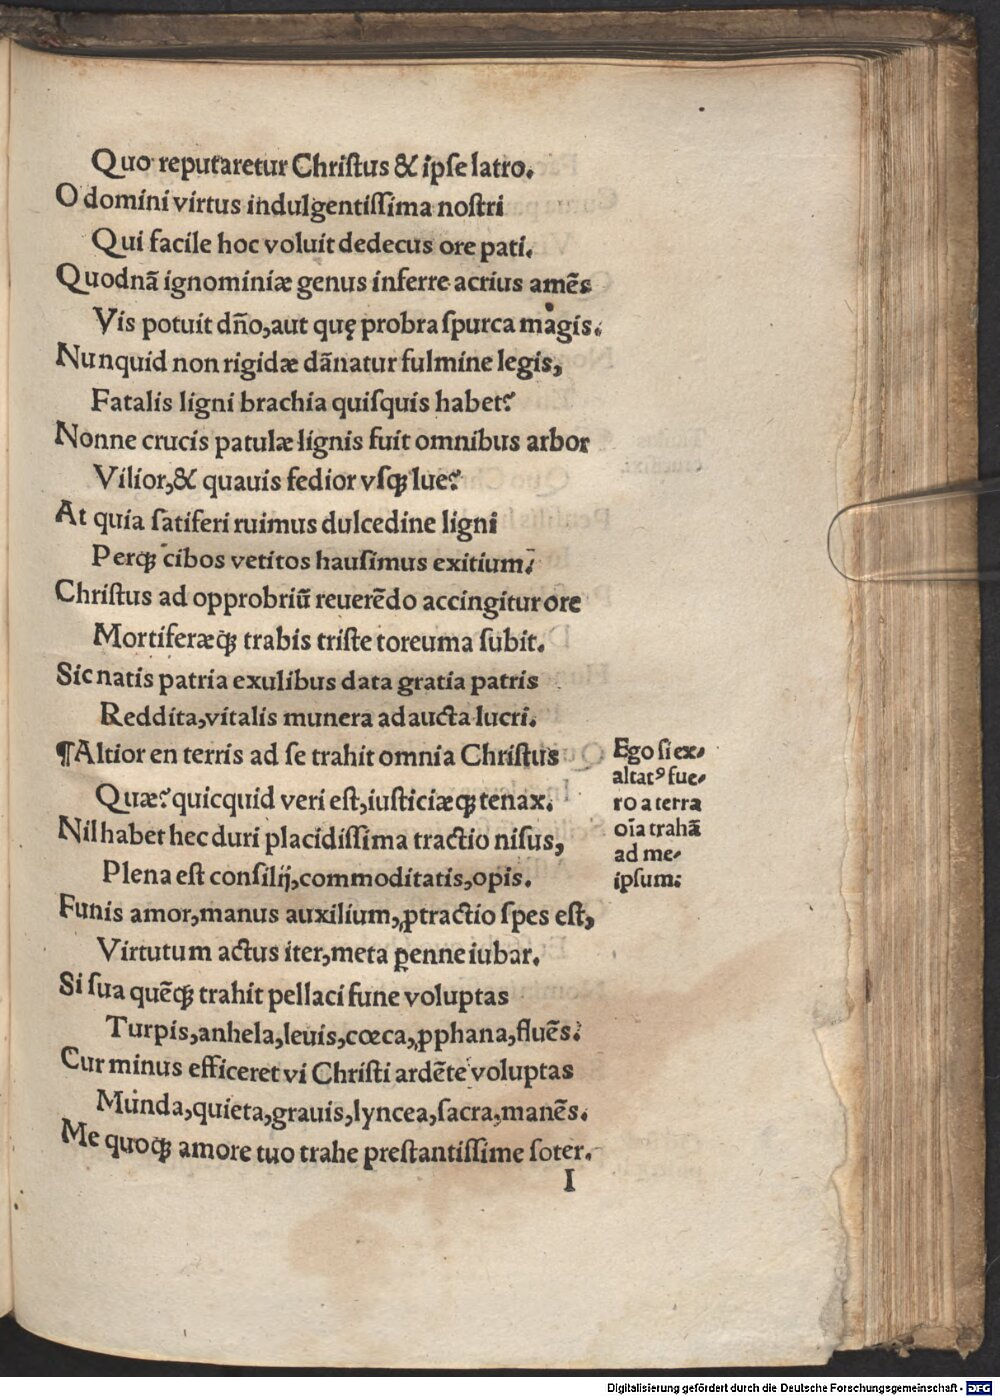 Quo reputaretur Chriſtus & ipſe latro.
O domini virtus indulgentiſſima noſtri
Qui facile hoc voluit dedecus ore pati.
Quodnã ignominiæ genus inferre acrius amẽs
Vis potuit dño, aut quę probra ſpurca magis.
Nunquid non rigidæ dãnatur fulmine legis,
Fatalis ligni brachia quiſquis habet?
Nonne crucis patulæ lignis fuit omnibus arbor
Vilior, & quauis fedior vſqꝫ lue?
At quia ſatiferi ruimus dulcedine ligni
Perqꝫ cibos vetitos hauſimus exitium:
Chriſtus ad opprobriũ reuerẽdo accingitur ore
Mortiferæqꝫ trabis triſte toreuma ſubit.
Sic natis patria exulibus data gratia patris
Reddita, vitalis munera adaucta lucri.
¶Altior en terris ad ſe trahit omnia Chriſtus
Quæ? quicquid veri eſt, iuſticiæqꝫ tenax.
Nil habet hec duri placidiſſima tractio niſus,
Plena eſt conſilij, commoditatis, opis.
Funis amor, manus auxilium, ꝓtractio ſpes eſt,
Virtutum actus iter, meta ꝑenne iubar.
Si ſua quẽqꝫ trahit pellaci fune voluptas
Turpis, anhela, leuis, cœca, ꝓphana, fluẽs:
Cur minus efficeret vi Chriſti ardẽte voluptas
Munda, quieta, grauis, lyncea, ſacra, manẽs.
Me quoqꝫ amore tuo trahe preſtantiſſime ſoter.
I
Ego ſi ex⸗
altatꝰ fue⸗
ro a terra
oĩa trahã
ad me⸗
ipſum:
Digitalisierung gefördert durch die Deutsche Forschungsgemeinschaft - DFG